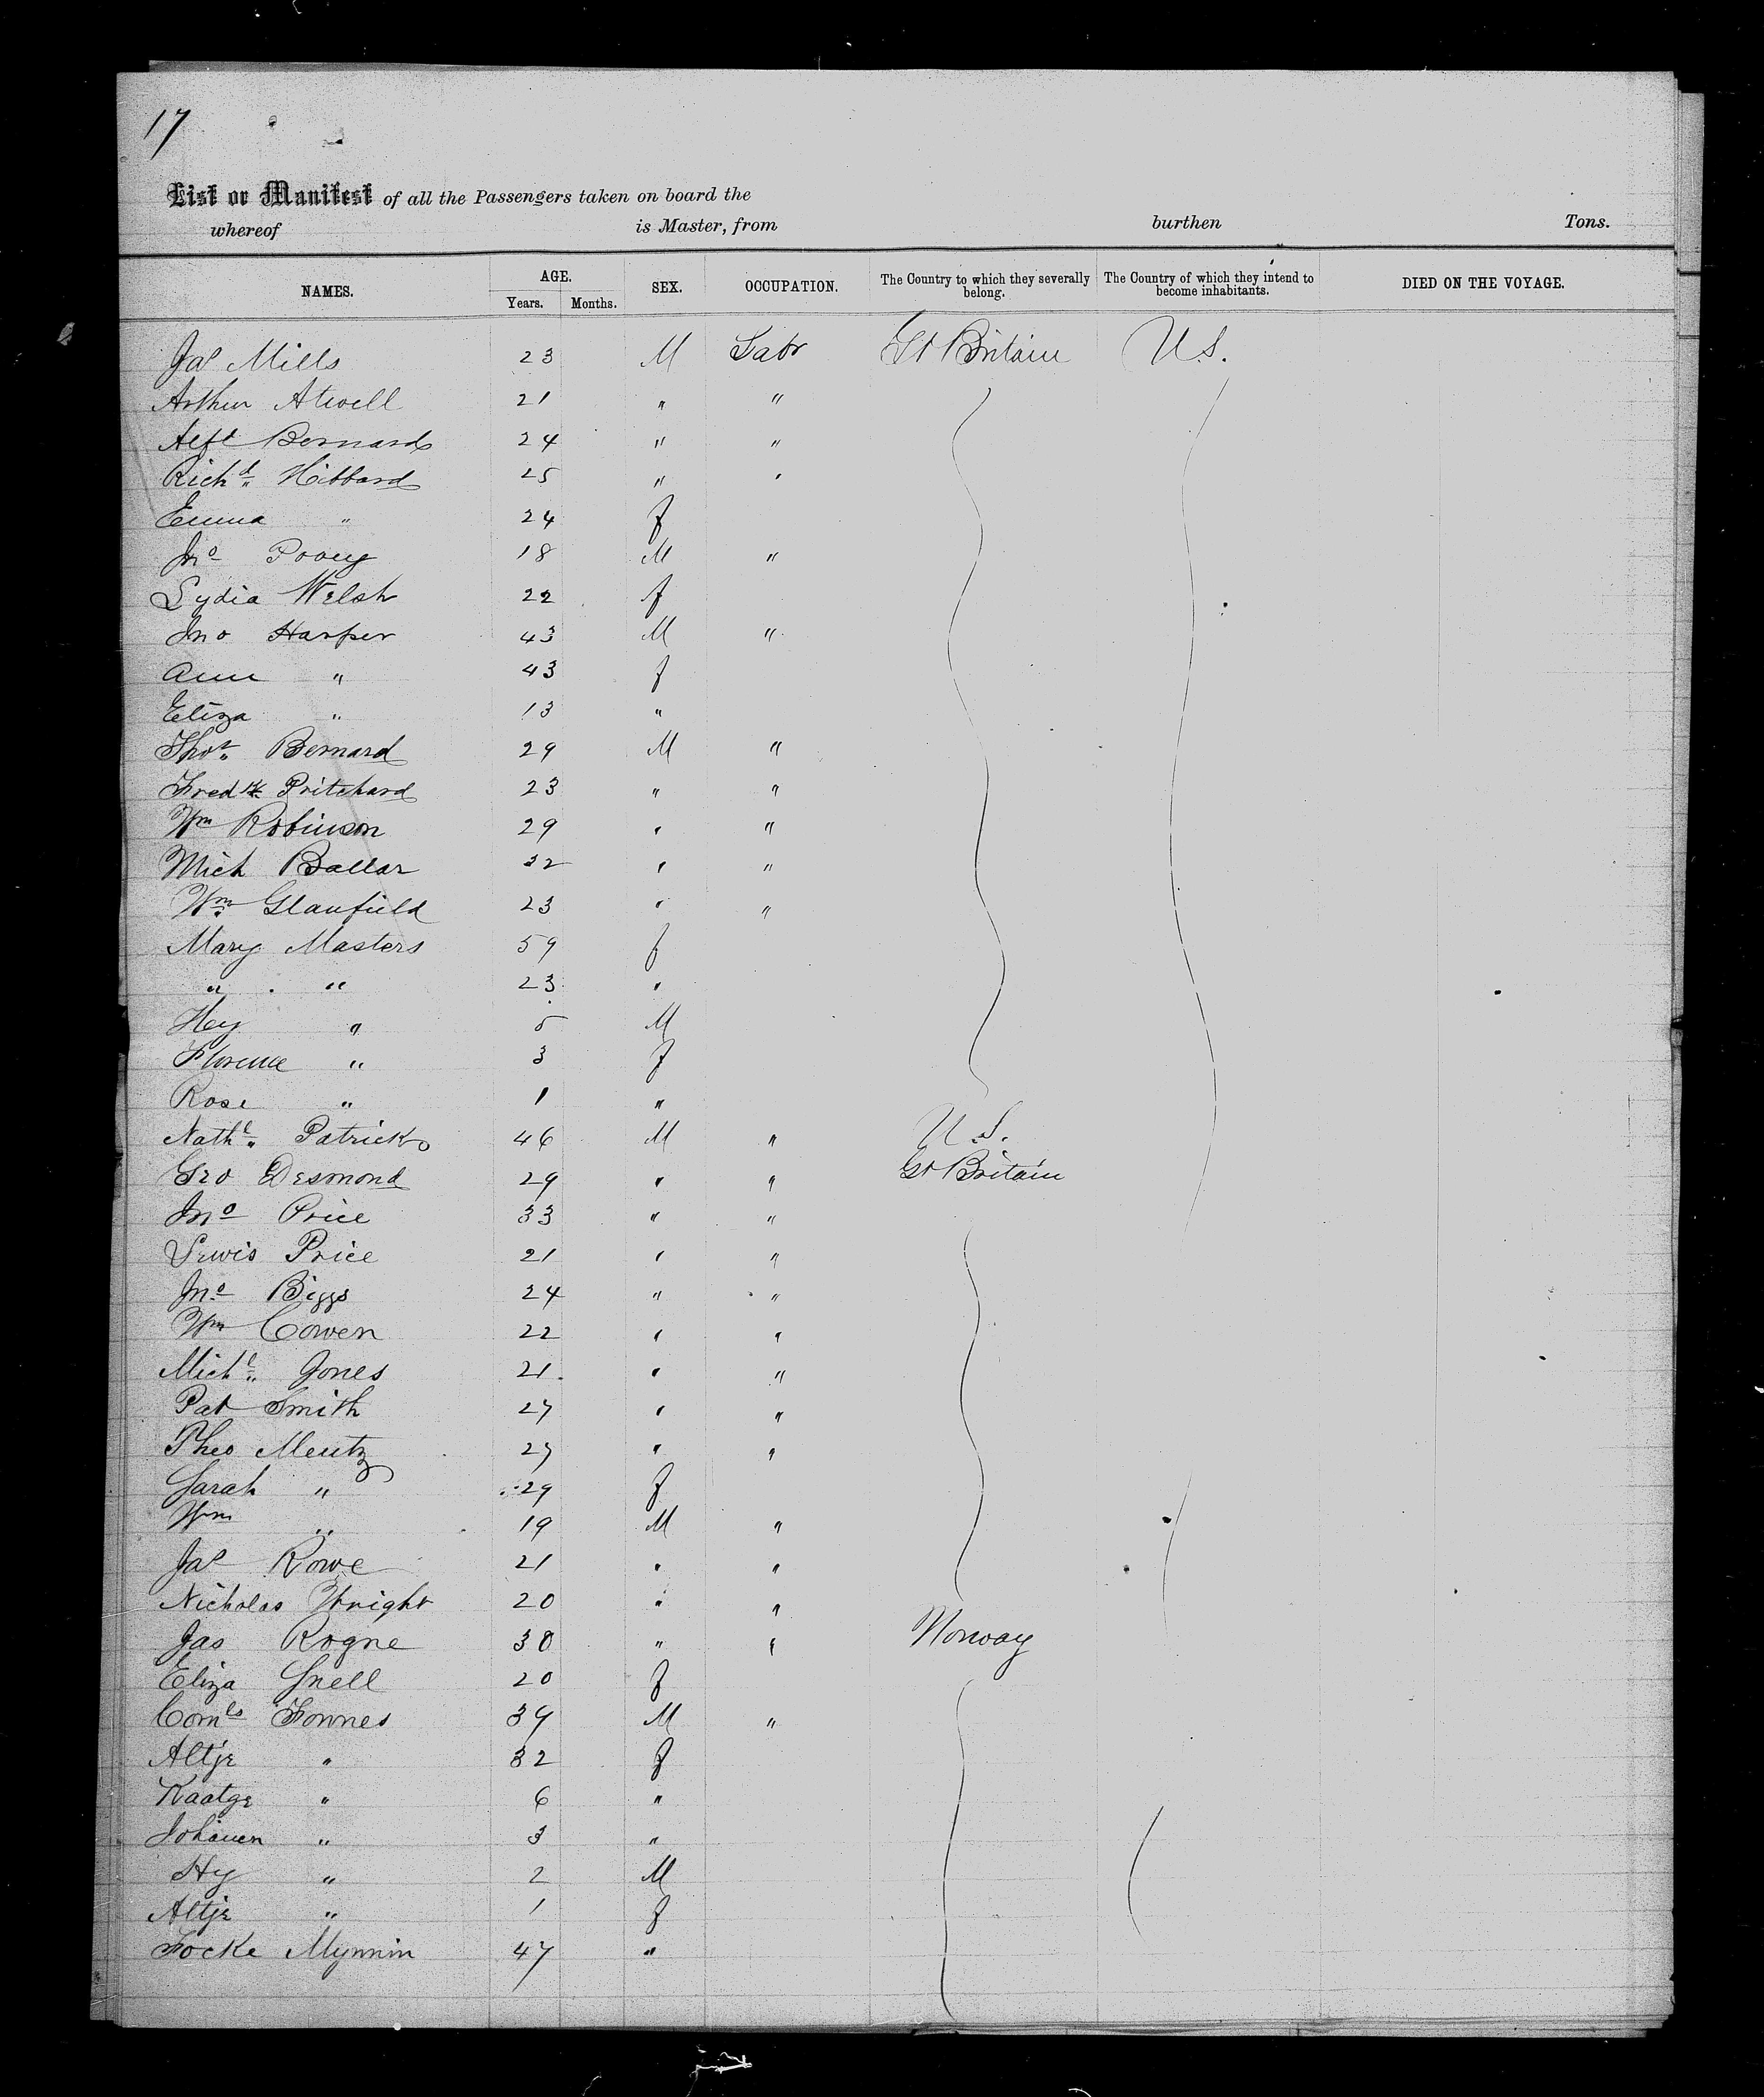 17
List or Manifest of all the Passengers taken on board the
whereof is Master, from burthen Tons.
NAMES. AGE. Years. Months. SEX. OCCUPATION. The Country to which they severally belong. The Country of which they intend to become inhabitants. DIED ON THE VOYAGE.
Jas Mills 23 M Labr Gt Britain U.S.
Arthur Atwell 21 " "
Alft Bernard 24 " "
Richd Hibbard 25 " "
Emma " 24 f
Jno Povey 18 M "
Lydia Welsh 22 f
Jno Harper 43 M "
Ann " 43 f
Eliza " 13 "
Thos Bernard 29 M "
Fredk Pritchard 23 " "
Wm Robinson 29 " "
Mich Ballar 32 " "
Wm Glanfield 23 " "
Mary Masters 59 f
" " 23 "
Hey " 5 M
Florence " 3 f
Rose " 1 "
Nathl Patrick 46 M " U.S.
Geo Desmond 29 " " Gt Britain
Jno Price 33 " "
Lewis Price 21 " "
Jno Biggs 24 " "
Wm Cowen 22 " "
Michl Jones 21 " "
Pat Smith 27 " "
Theo Mentz 27 " "
Sarah " 29 f
Wm " 19 M "
Jas Rowe 21 " "
Nicholas Wright 20 " "
Jas Rogne 30 " " Norway
Eliza Snell 20 f
Cornls Fonnes 39 M "
Altje " 32 f
Kaatge " 6 "
Johanen " 3 "
Hy " 2 M
Altje " 1 f
Focke Mynnin 47 "